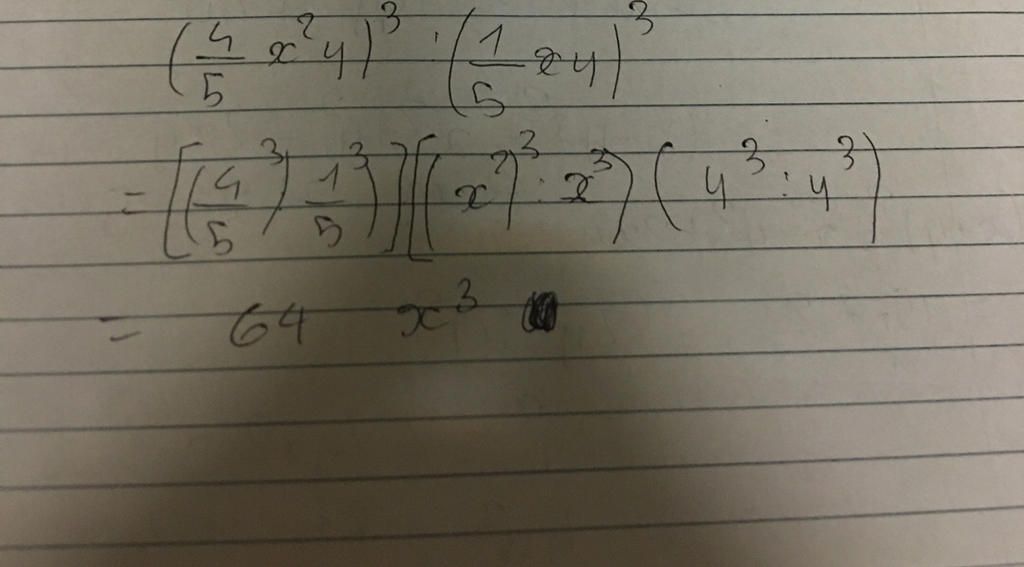 (4/5 x²y)³ : (1/5 xy)³
= [(4/5)³ 1/5³)] [(x²)³ : x³) (y³ : y³)
= 64 x³